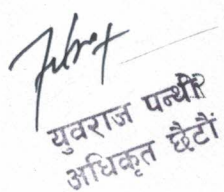 युवराज पन्थी
अधिकृत छैटौं